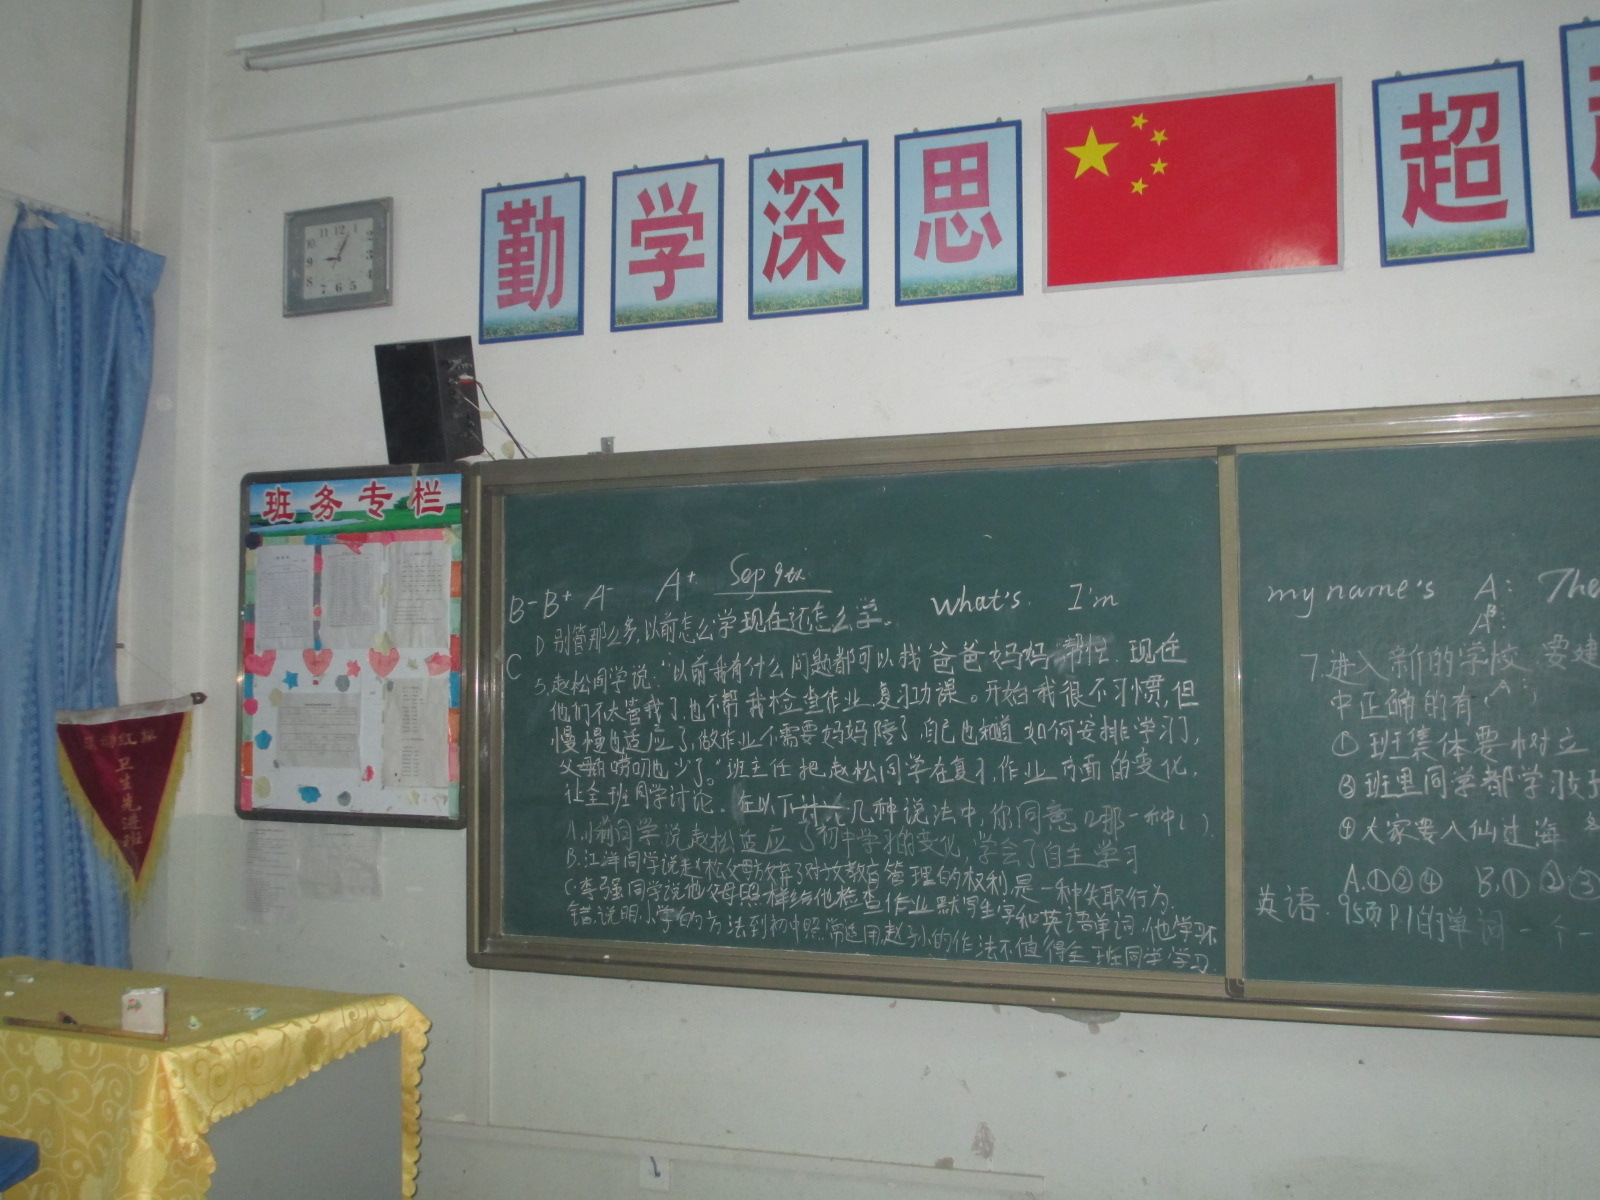 勤 学 深 思 超
11 12 1
10 2
9 3
8 4
7 6 5
班务专栏
卫生先进班
B- B+ A- A+ Sep 9th
What's. I'm
D 别管那么多,以前怎么学现在还怎么学。
C
5.赵松同学说:"以前我有什么问题都可以找爸爸妈妈帮忙.现在
他们不太管我了,也不帮我检查作业,复习功课。开始我很不习惯,但
慢慢也适应了,做作业不需要妈妈陪了,自己也知道如何安排学习了,
父母的唠叨也少了。"班主任把赵松同学在复习,作业方面的变化,
让全班同学讨论.在以下讨论几种说法中,你同意哪一种( ).
同学说赵松适应了初中学习的变化,学会了自主学习
B.江洋同学说赵松父母放弃了对子女教育管理的权利,是一种失职行为.
C.李强同学说他父母照样给他检查作业,默写生字和英语单词,他学习不
错,说明小学的方法到初中照常适用,赵松的作法不值得全班同学学习.
my name's A: The
B:
A:
7.进入新的学校,要建
中正确的有(
①班集体要树立
③班里同学都学习
④大家要八仙过海
A.①②④ B.①②③
英语.95页P1的单词一个一